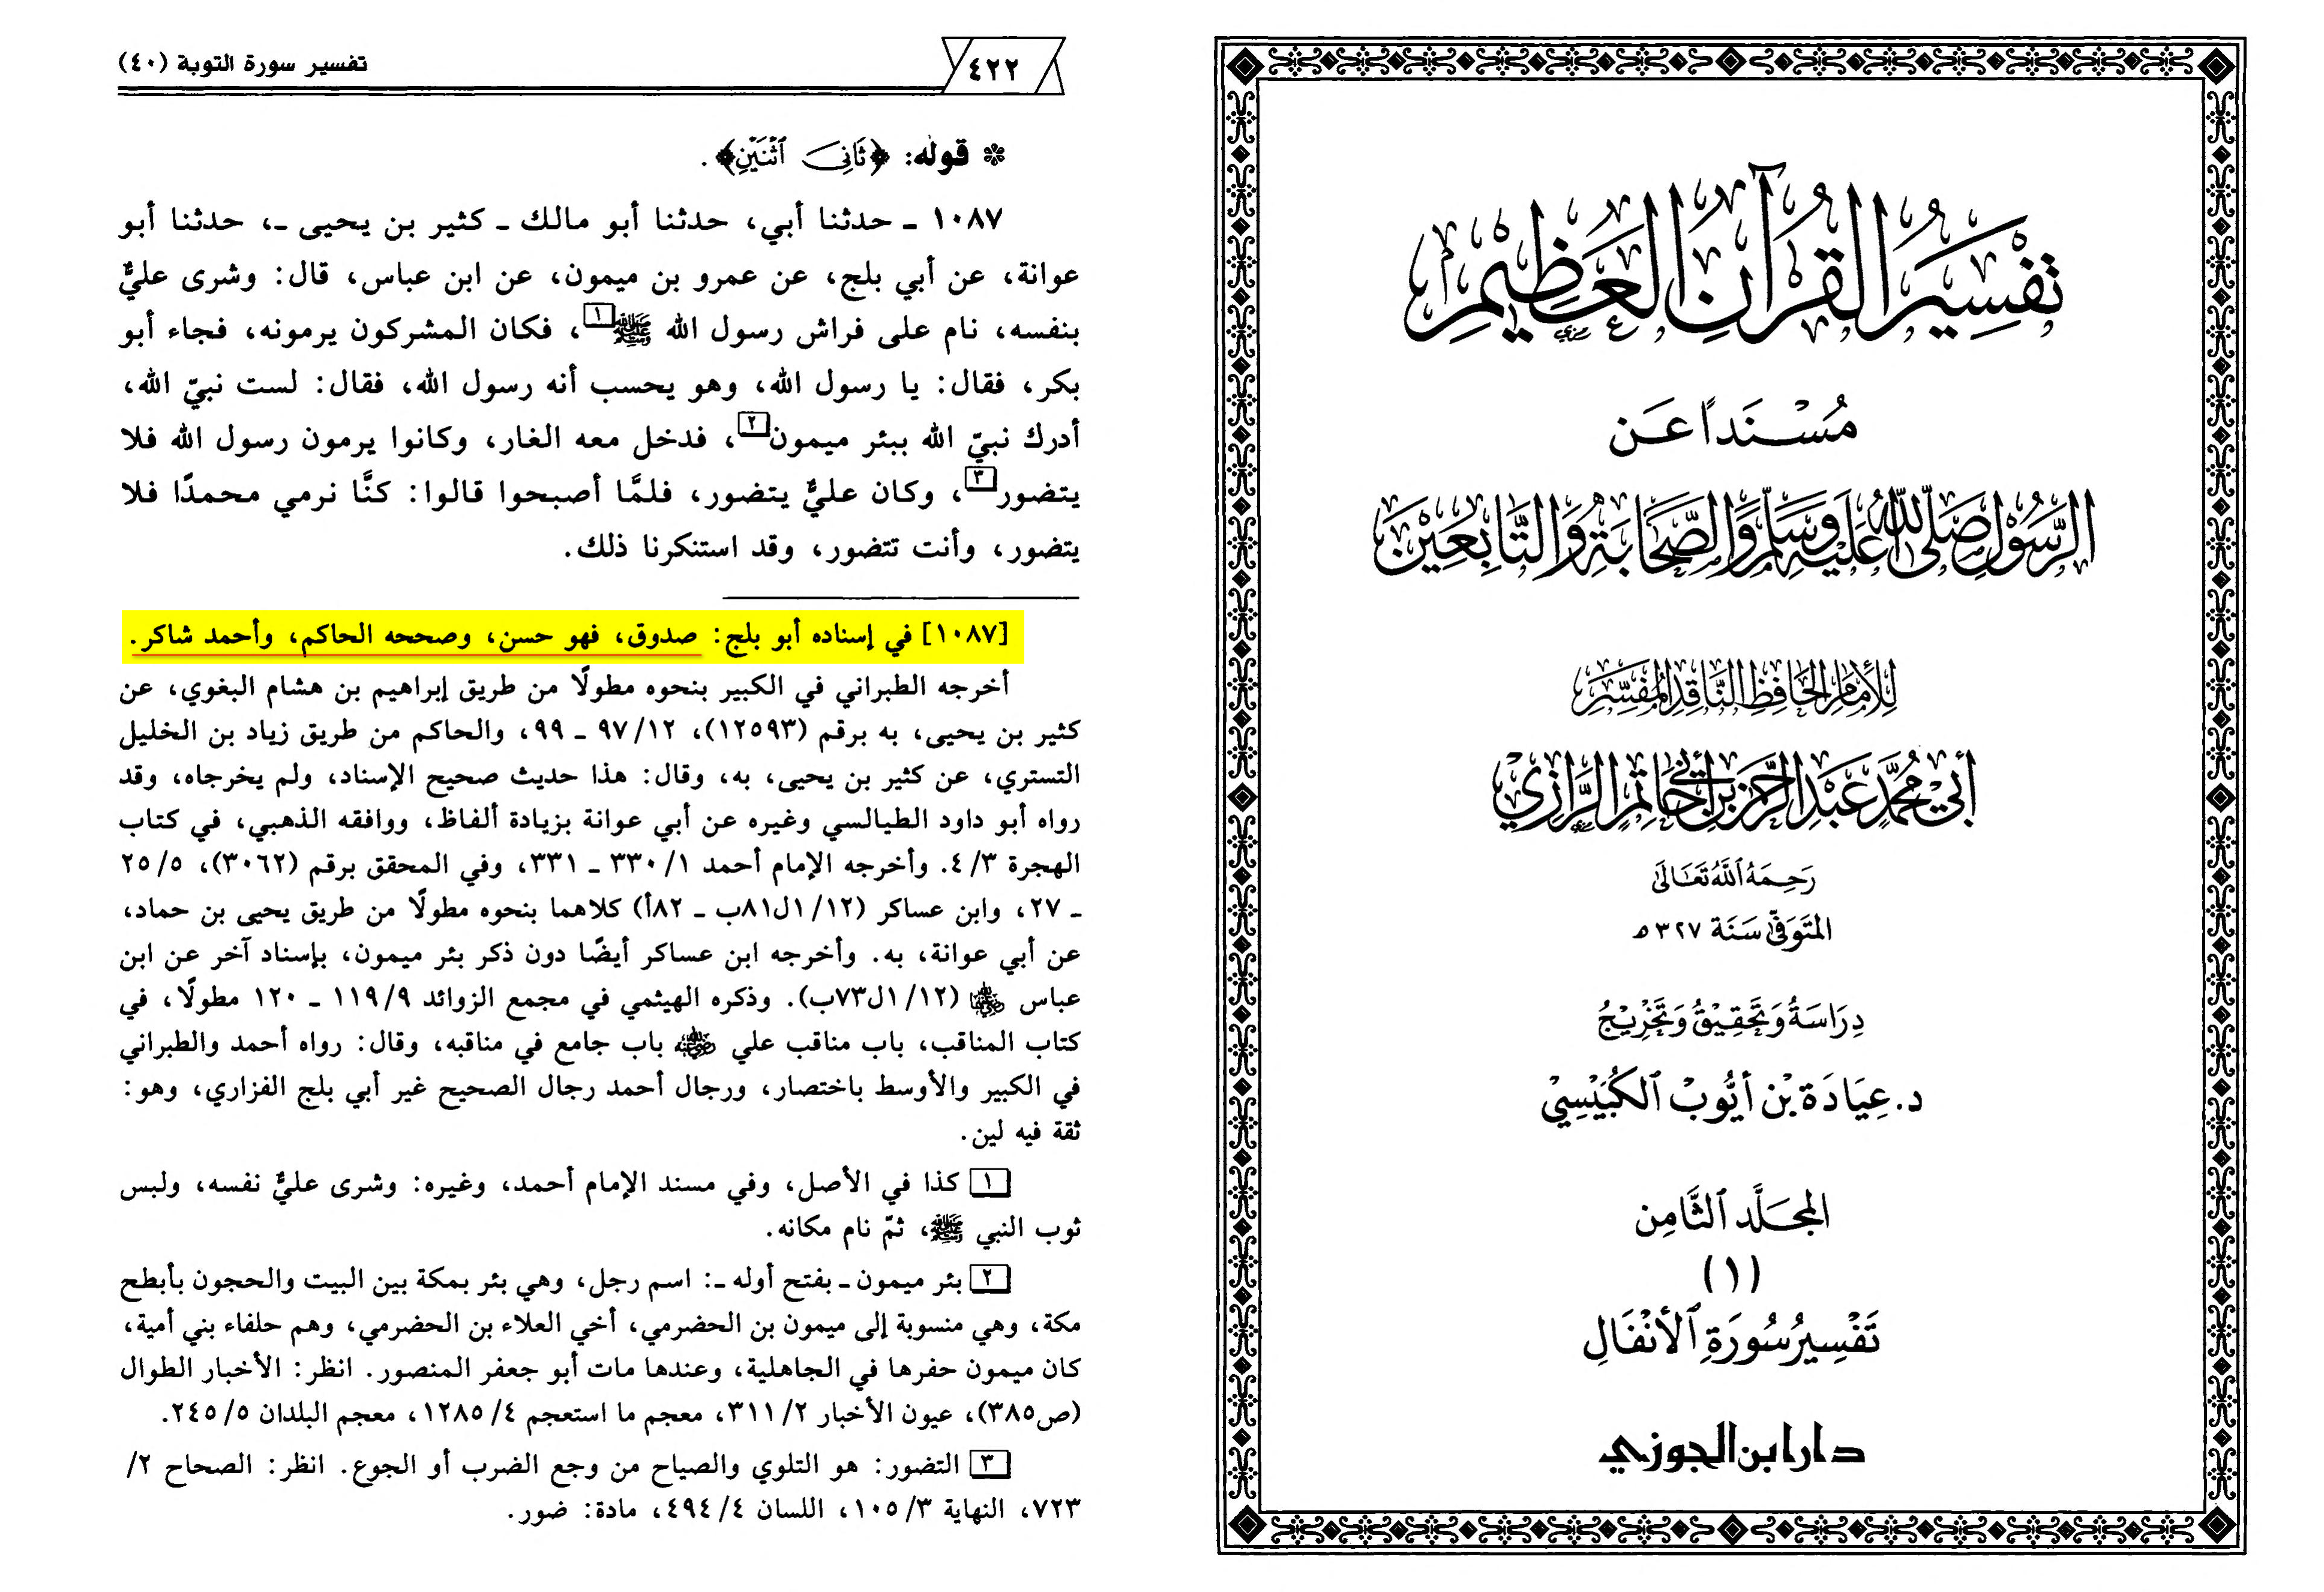 تَفْسِيرُ القُرْآنِ العَظِيمِ
مُسْنَدًا عَن
الرَّسُولِ صَلَّى اللهُ عَلَيْهِ وَسَلَّمَ وَالصَّحَابَةِ وَالتَّابِعِينَ
لِلْإِمَامِ الحَافِظِ النَّاقِدِ المُفَسِّرِ
أَبِي مُحَمَّد عَبْدِ الرَّحْمَن بْنِ أَبِي حَاتِم الرَّازِي
رَحِمَهُ اللَّهُ تَعَالَى
المُتَوَفَّى سَنَة ٣٢٧ ه
دِرَاسَةُ وَتَحْقِيقُ وَتَخْرِيجُ
د. عِيَادَة بْن أَيُّوب الكُبَيْسِيّ
المجَلَّد الثَّامِن
(١)
تَفْسِيرُ سُورَةِ الْأَنْفَالِ
دار ابن الجوزي
٤٢٢
تفسير سورة التوبة (٤٠)
* قوله: ﴿ثَانِيَ اثْنَيْنِ﴾.
١٠٨٧ ـ حدثنا أبي، حدثنا أبو مالك ـ كثير بن يحيى ـ، حدثنا أبو
عوانة، عن أبي بلج، عن عمرو بن ميمون، عن ابن عباس، قال: وشرى عليٌّ
بنفسه، نام على فراش رسول الله ﷺ[١]، فكان المشركون يرمونه، فجاء أبو
بكر، فقال: يا رسول الله، وهو يحسب أنه رسول الله، فقال: لست نبيّ الله،
أدرك نبيّ الله ببئر ميمون[٢]، فدخل معه الغار، وكانوا يرمون رسول الله فلا
يتضور[٣]، وكان عليٌّ يتضور، فلمَّا أصبحوا قالوا: كنَّا نرمي محمدًا فلا
يتضور، وأنت تتضور، وقد استنكرنا ذلك.
[١٠٨٧] في إسناده أبو بلج: صدوق، فهو حسن، وصححه الحاكم، وأحمد شاكر.
أخرجه الطبراني في الكبير بنحوه مطولًا من طريق إبراهيم بن هشام البغوي، عن
كثير بن يحيى، به برقم (١٢٥٩٣)، ٩٧/١٢ ـ ٩٩، والحاكم من طريق زياد بن الخليل
التستري، عن كثير بن يحيى، به، وقال: هذا حديث صحيح الإسناد، ولم يخرجاه، وقد
رواه أبو داود الطيالسي وغيره عن أبي عوانة بزيادة ألفاظ، ووافقه الذهبي، في كتاب
الهجرة ٤/٣. وأخرجه الإمام أحمد ٣٣٠/١ ـ ٣٣١، وفي المحقق برقم (٣٠٦٢)، ٢٥/٥
ـ ٢٧، وابن عساكر (١/١٢ل٨١ب ـ ٨٢أ) كلاهما بنحوه مطولًا من طريق يحيى بن حماد،
عن أبي عوانة، به. وأخرجه ابن عساكر أيضًا دون ذكر بئر ميمون، بإسناد آخر عن ابن
عباس ﵄ (١/١٢ل٧٣ب). وذكره الهيثمي في مجمع الزوائد ١١٩/٩ ـ ١٢٠ مطولًا، في
كتاب المناقب، باب مناقب علي ﵁ باب جامع في مناقبه، وقال: رواه أحمد والطبراني
في الكبير والأوسط باختصار، ورجال أحمد رجال الصحيح غير أبي بلج الفزاري، وهو:
ثقة فيه لين.
[١] كذا في الأصل، وفي مسند الإمام أحمد، وغيره: وشرى عليٌّ نفسه، ولبس
ثوب النبي ﷺ، ثمّ نام مكانه.
[٢] بئر ميمون ـ بفتح أوله ـ: اسم رجل، وهي بئر بمكة بين البيت والحجون بأبطح
مكة، وهي منسوبة إلى ميمون بن الحضرمي، أخي العلاء بن الحضرمي، وهم حلفاء بني أمية،
كان ميمون حفرها في الجاهلية، وعندها مات أبو جعفر المنصور. انظر: الأخبار الطوال
(ص٣٨٥)، عيون الأخبار ٣١١/٢، معجم ما استعجم ١٢٨٥/٤، معجم البلدان ٢٤٥/٥.
[٣] التضور: هو التلوي والصياح من وجع الضرب أو الجوع. انظر: الصحاح ٢/
٧٢٣، النهاية ١٠٥/٣، اللسان ٤٩٤/٤، مادة: ضور.